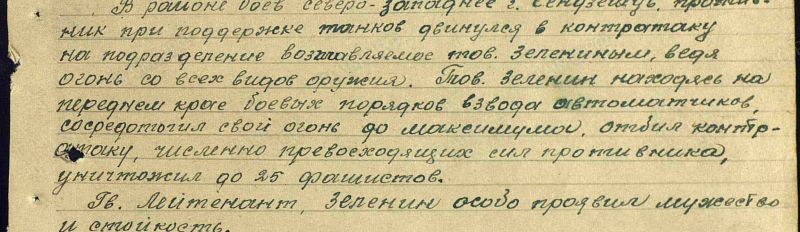 В районе боев северо-западнее г. Сендзешув, против-
ник при поддержке танков двинулся в контратаку
на подразделение возглавляемое тов. Зелениным, ведя
огонь со всех видов оружия. Тов. Зеленин находясь на
переднем крае боевых порядков взвода автоматчиков,
сосредоточил свой огонь до максимума, отбил контр-
атаку, численно превосходящих сил противника,
уничтожил до 25 фашистов.
Гв. Лейтенант, Зеленин особо проявил мужество
и стойкость.